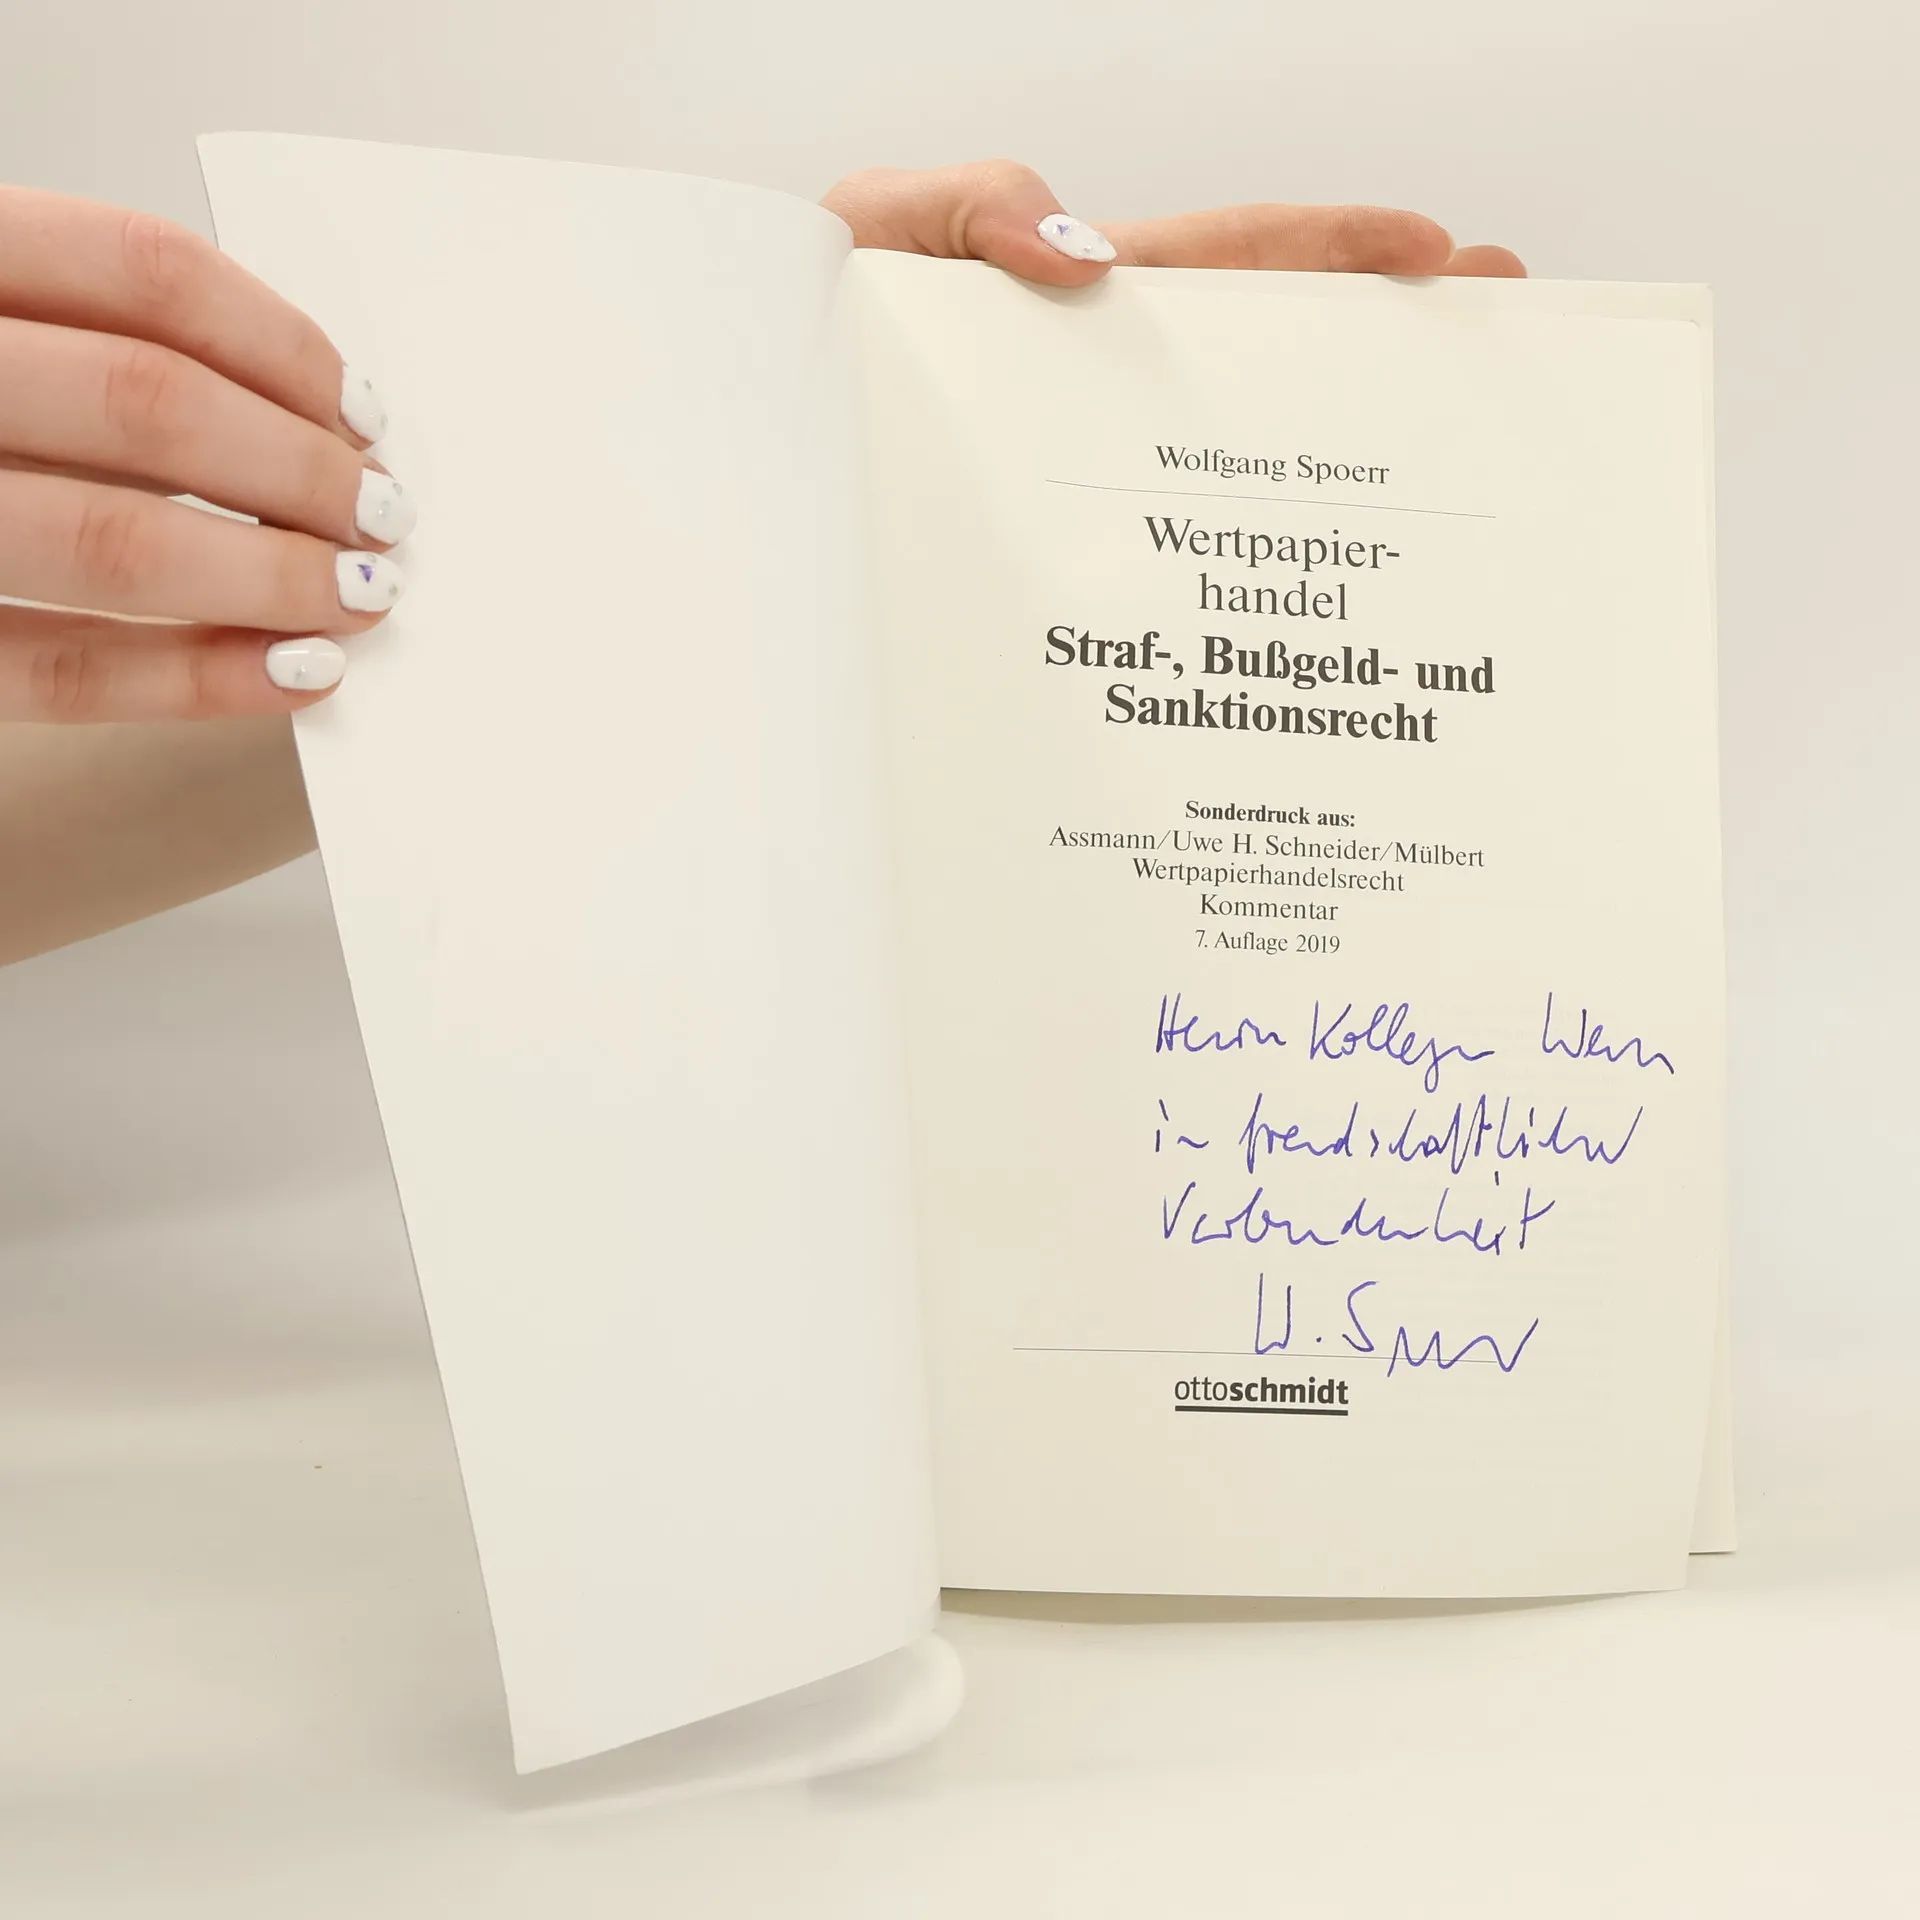 Wolfgang Spoerr
Wertpapier-
handel
Straf-, Bußgeld- und
Sanktionsrecht
Sonderdruck aus:
Assmann/Uwe H. Schneider/Mülbert
Wertpapierhandelsrecht
Kommentar
7. Auflage 2019
Herrn Kollegen
in freundschaftlicher
Verbundenheit
W. Spoerr
ottoschmidt